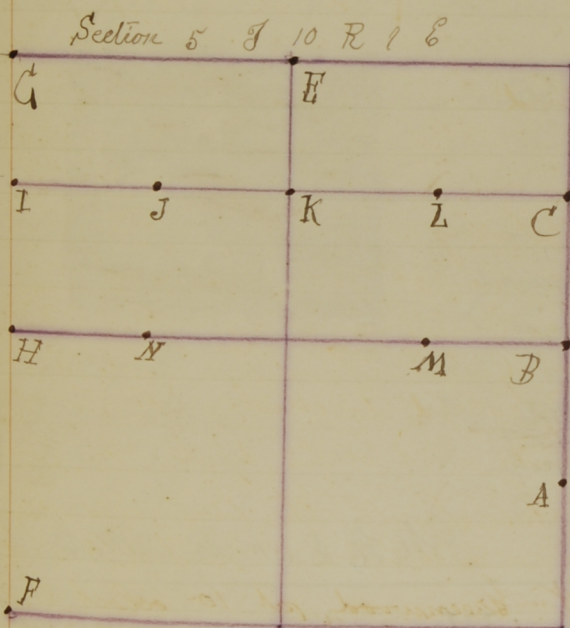 Section 5 T 10 R 1 E
G E
I J K L C
H N M B
A
F